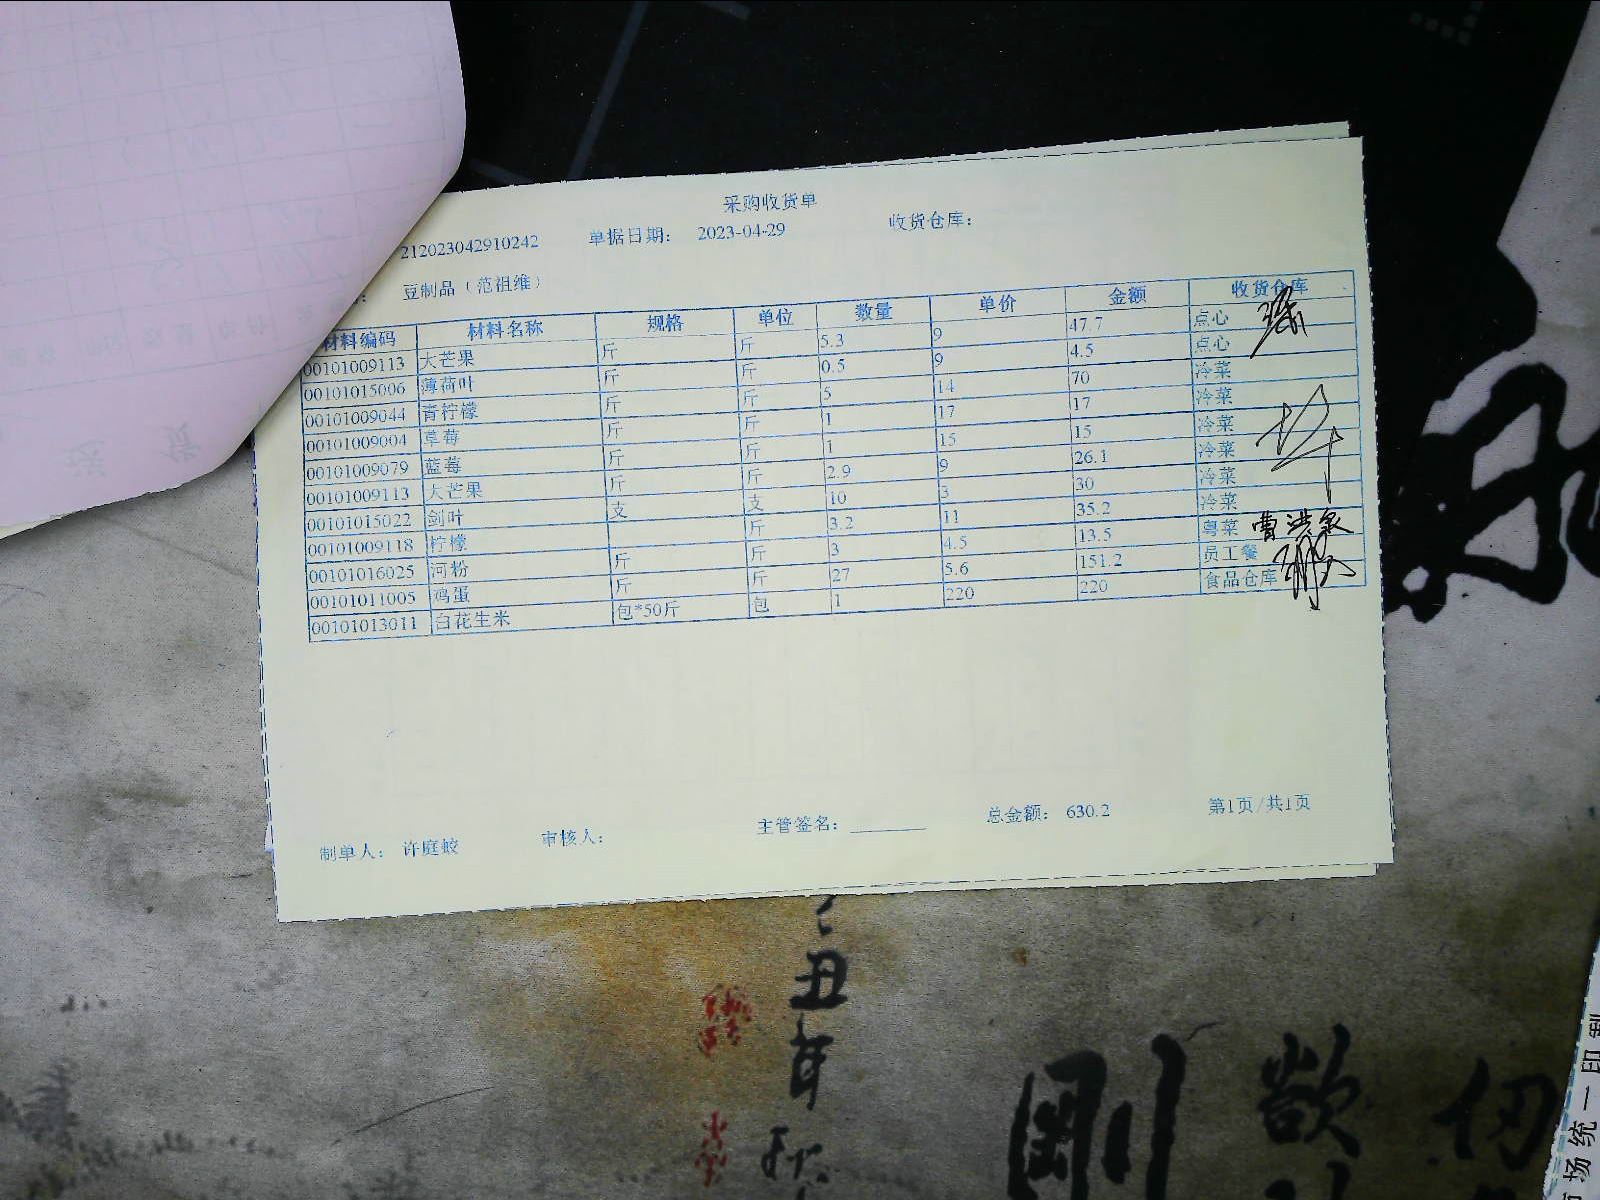 采购收货单
212023042910242 单据日期: 2023-04-29 收货仓库:
: 豆制品（范祖维）
材料编码 材料名称 规格 单位 数量 单价 金额 收货仓库
00101009113 大芒果 斤 斤 5.3 9 47.7 点心
00101015006 薄荷叶 斤 斤 0.5 9 4.5 点心
00101009044 青柠檬 斤 斤 5 14 70 冷菜
00101009004 草莓 斤 斤 1 17 17 冷菜
00101009079 蓝莓 斤 斤 1 15 15 冷菜
00101009113 大芒果 斤 斤 2.9 9 26.1 冷菜
00101015022 剑叶 支 支 10 3 30 冷菜
00101009118 柠檬 斤 3.2 11 35.2 冷菜
00101016025 河粉 斤 斤 3 4.5 13.5 粤菜 曹洪泉
00101011005 鸡蛋 斤 斤 27 5.6 151.2 员工餐
00101013011 白花生米 包*50斤 包 1 220 220 食品仓库
制单人: 许庭蛟 审核人: 主管签名: 总金额: 630.2 第1页/共1页
丑年秋
剛
欲
场统一印制